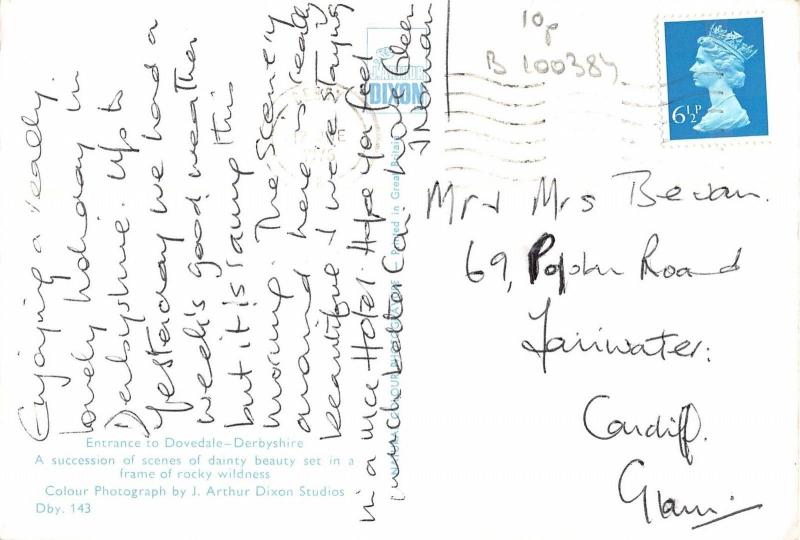 Enjoying a really
lovely holiday in
Derbyshire. Up to
Yesterday we had a
week's good weather
but it is raining this
morning. The Scenery
around here is really
beautiful & we're staying
in a nice Hotel. Hope You feel
much better Can. Love Eileen
& Norman
10p
B 100384
6½P
Mr & Mrs Bevan.
69, Poplar Road
Fairwater.
Cardiff.
Glam.
DIXON
Printed in Great Britain
Entrance to Dovedale–Derbyshire
A succession of scenes of dainty beauty set in a
frame of rocky wildness
Colour Photograph by J. Arthur Dixon Studios
Dby. 143